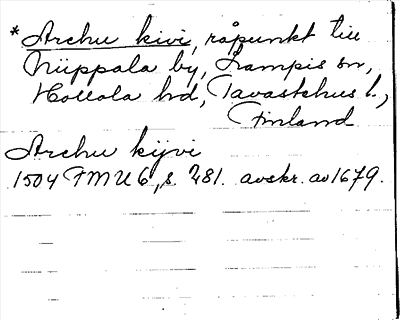 *Archu kivi, råpunkt till
Niippala by, Lampis sn,
Hollola hd, Tavastehus l.,
Finland
Archu kijvi
1504 FMU 6, s. 281. avskr. av 1679.